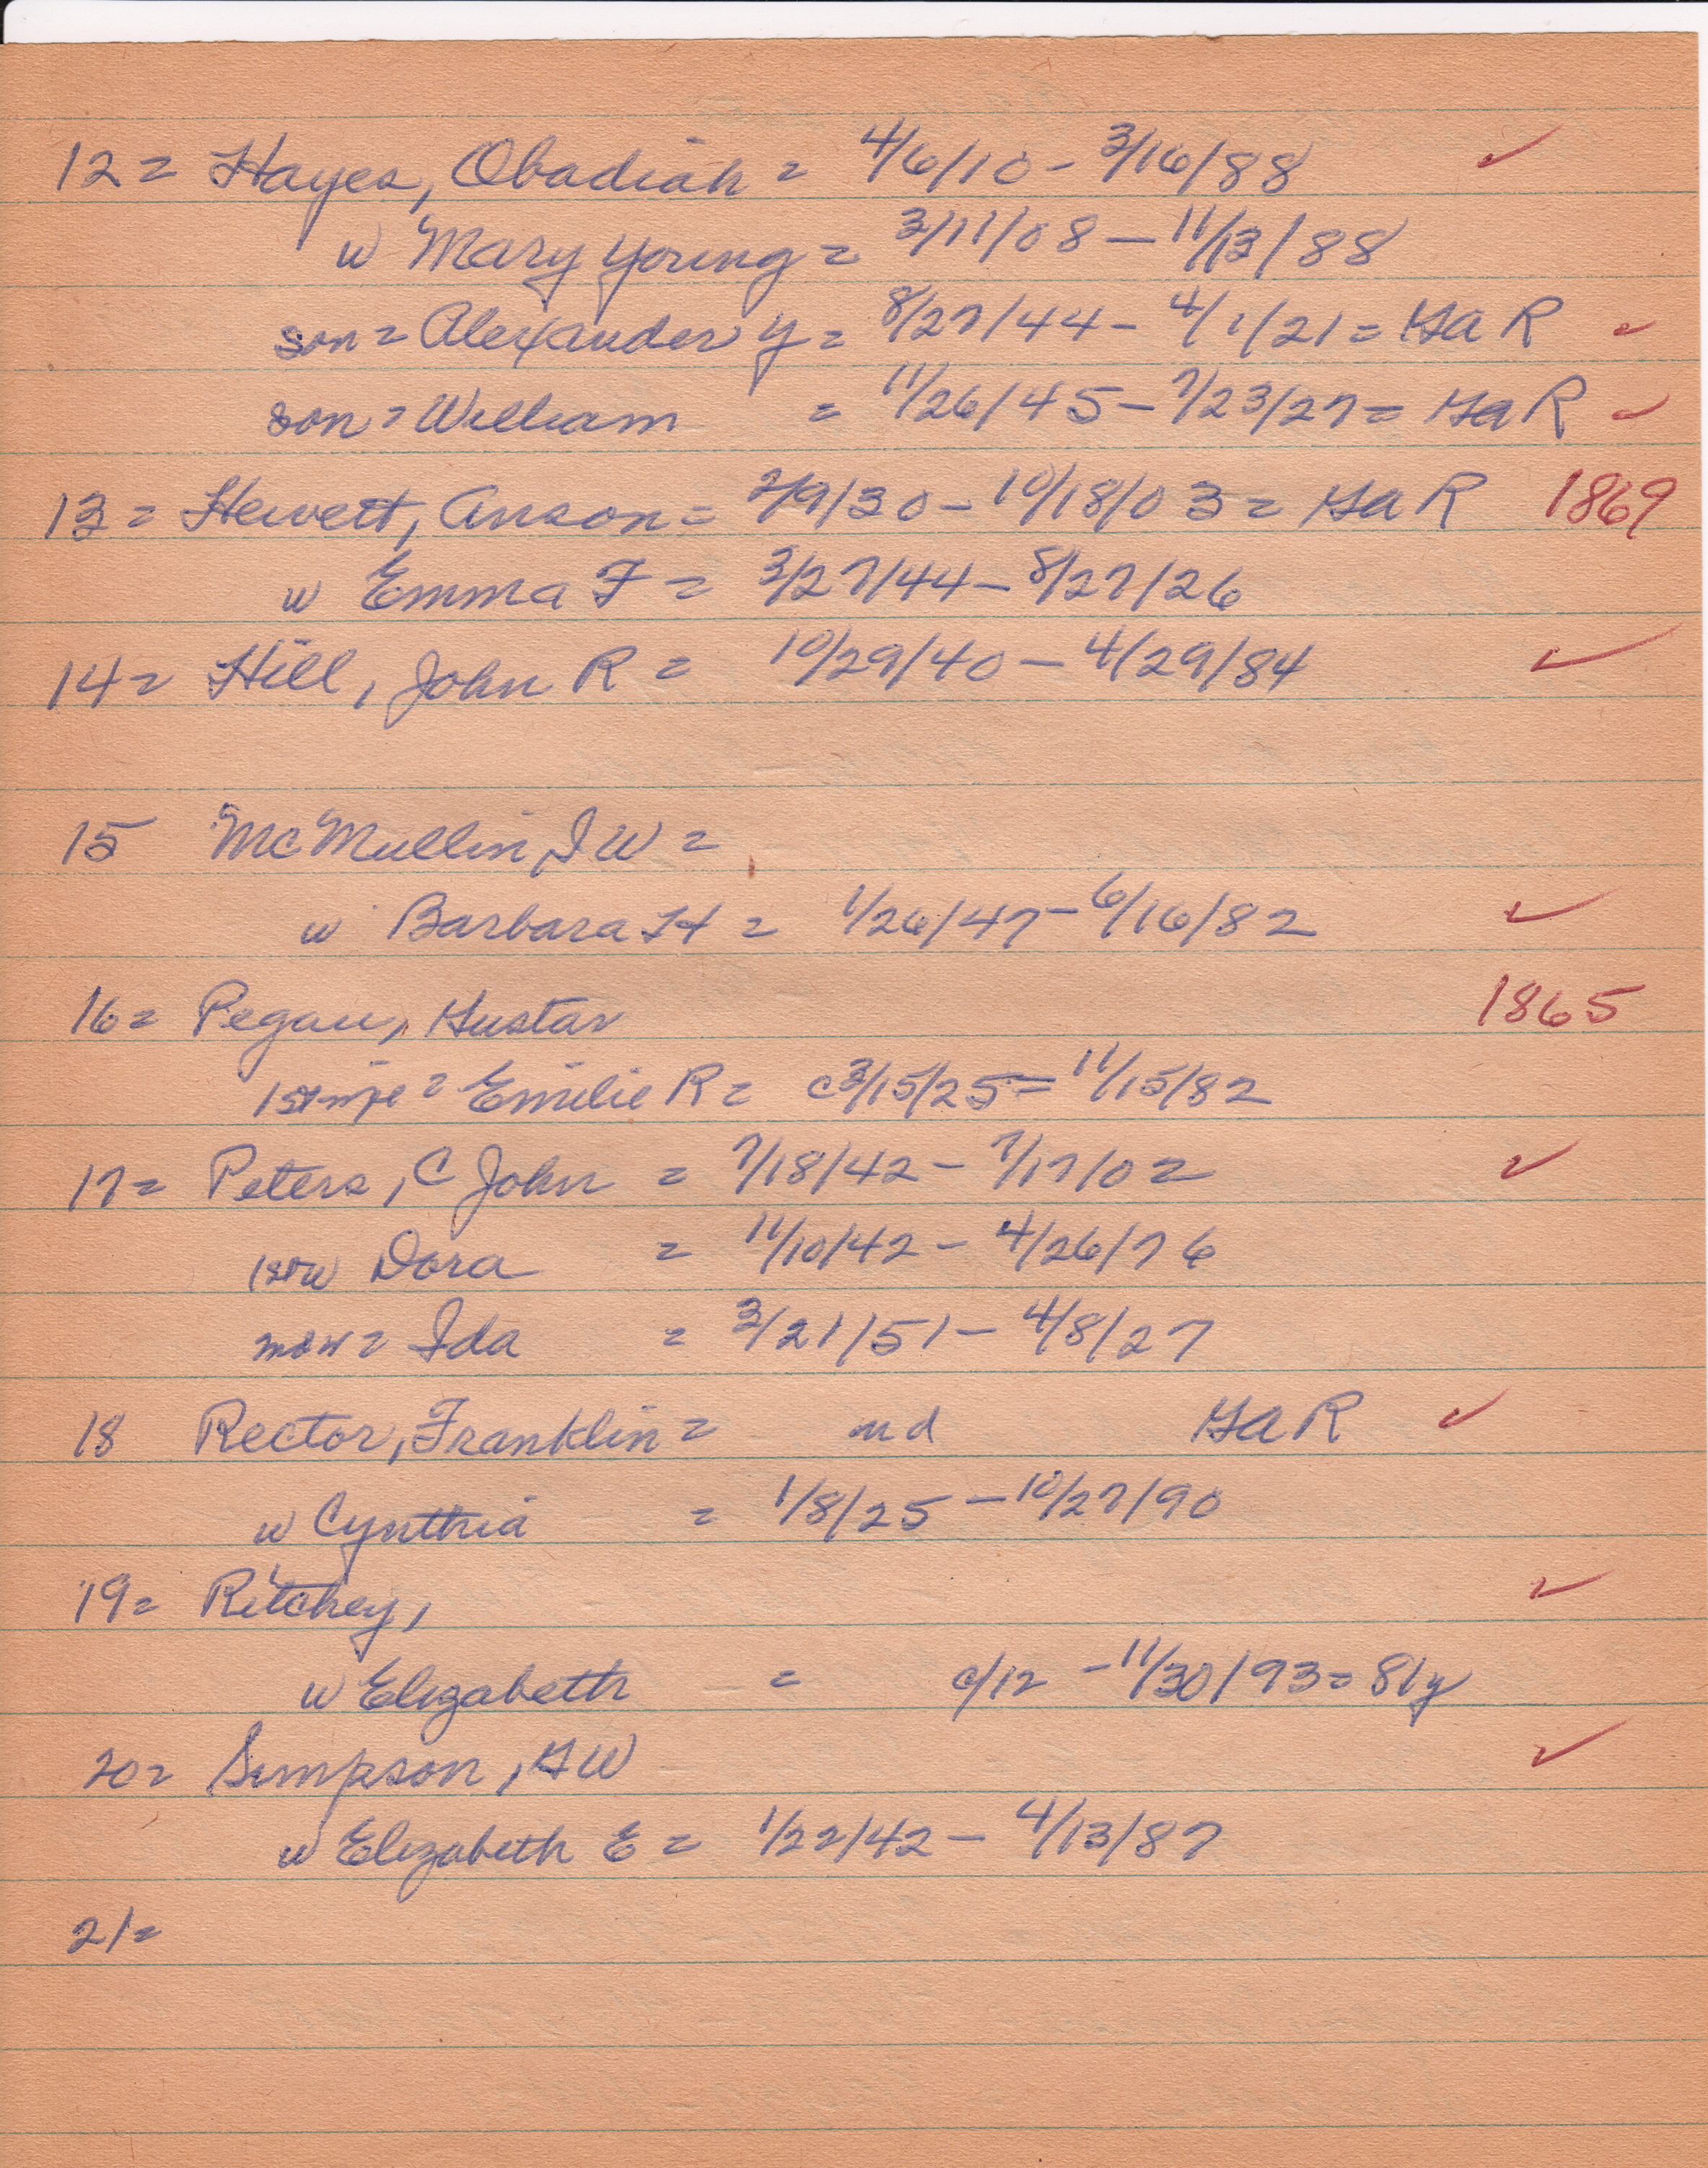 12 = Hayes, Obadiah = 4/6/10 - 3/16/88 ✓
w Mary Young = 3/11/08 - 11/13/88
son = Alexander Y = 8/27/44 - 4/1/21 = GAR ✓
son = William = 11/26/45 - 7/23/27 = GAR ✓
13 = Hewett, Anson = 2/9/30 - 10/18/03 = GAR 1869
w Emma F = 3/27/44 - 8/27/26
14 = Hill, John R = 10/29/40 - 4/29/84 ✓
15 McMullin, J W =
w Barbara H = 1/26/47 - 6/16/82 ✓
16 = Pegau, Gustav 1865
1st wife = Emilie R = c 3/15/25 = 11/15/82
17 = Peters, C John = 7/18/42 - 7/17/02 ✓
1st w Dora = 11/10/42 - 4/26/76
w = Ida = 3/21/51 - 4/8/27
18 Rector, Franklin = nd GAR ✓
w Cynthia = 1/8/25 - 10/27/90
19 = Ritchey, ✓
w Elizabeth = c/12 - 11/30/93 = 81y
20 = Simpson, GW ✓
w Elizabeth E = 1/22/42 - 4/13/87
21 =